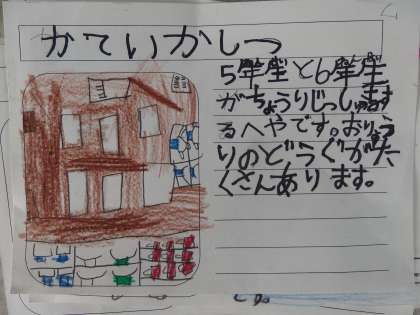 かていかしつ
5年座と6年座
がちょうりじっしゅうます
るへやです。おりょう
りのどうぐが六
くさんあり ます。